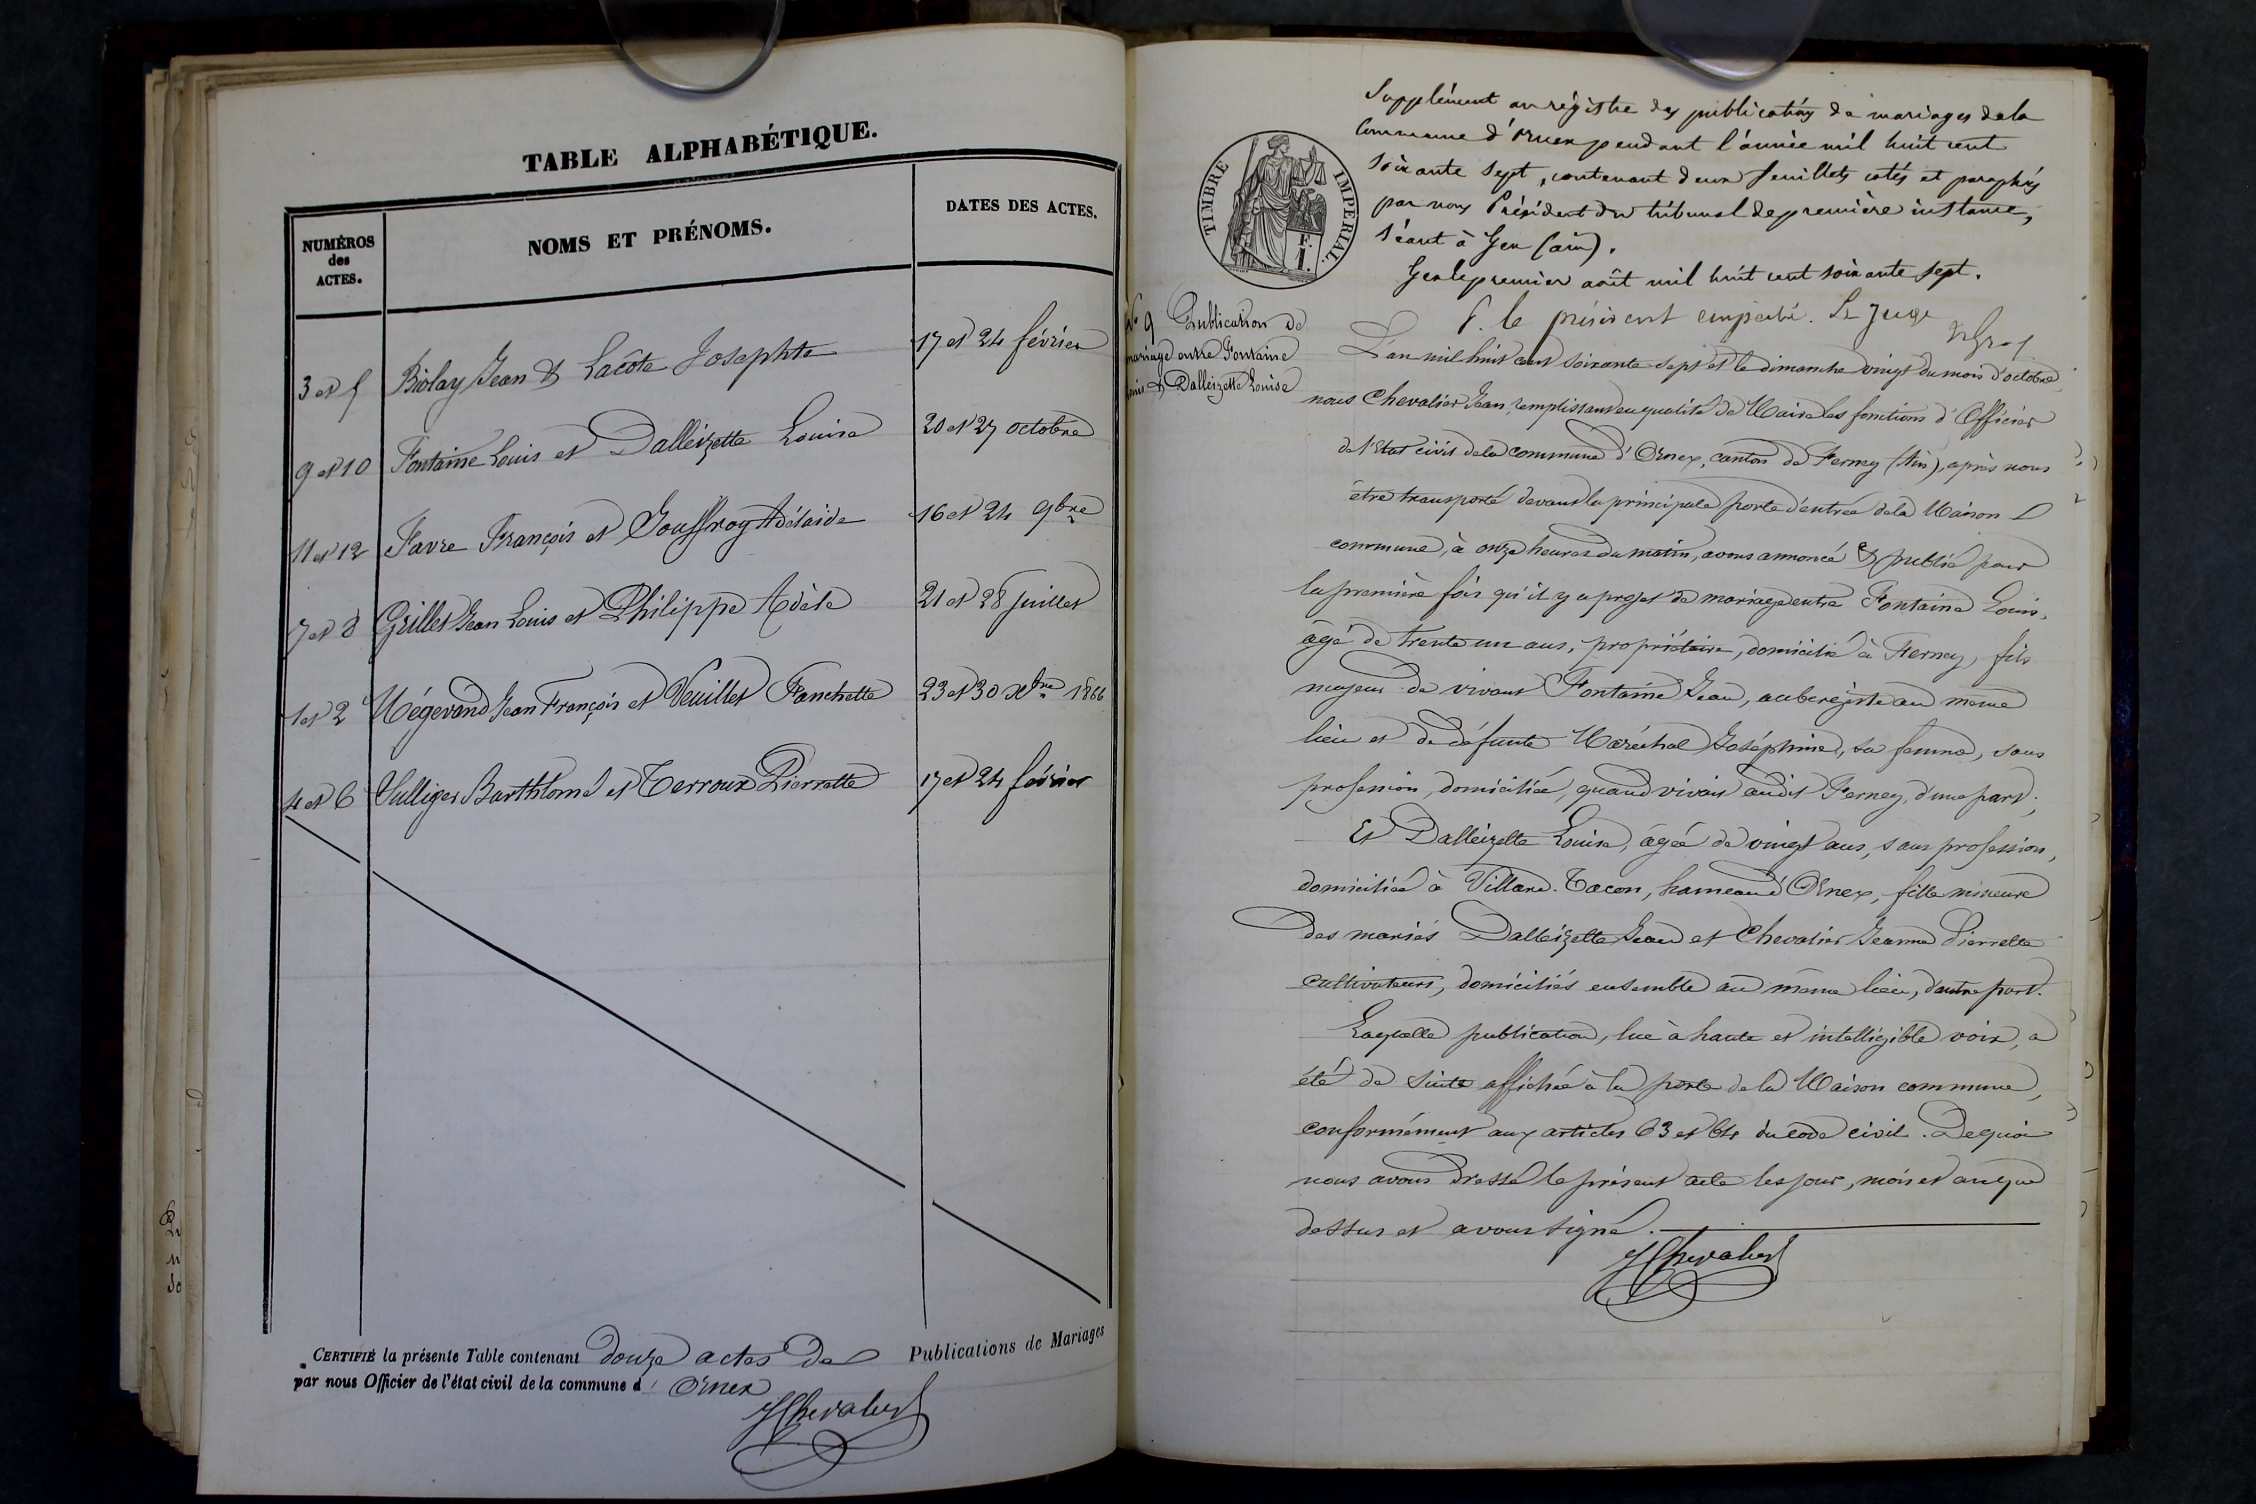 TABLE ALPHABÉTIQUE.
NUMÉROS des ACTES.
NOMS ET PRÉNOMS.
DATES DES ACTES.
3 et 5 Biolay Jean & Lacôte Josephte 17 et 24 février
9 et 10 Fontaine Louis et Dalleizette Louise 20 et 27 octobre
11 et 12 Favre François et Jouffroy Adélaïde 16 et 24 9bre
7 et 8 Grillet Jean Louis et Philippe Adèle 21 et 28 juillet
1 et 2 Mégevand Jean François et Veuillet Fanchette 23 et 30 Xbre 1866
4 et 6 Sulliger Barthlomé et Terroux Pierrette 17 et 24 février
CERTIFIÉ la présente Table contenant douze actes de Publications de Mariages
par nous Officier de l'état civil de la commune d' Ornex
J Chevalier
TIMBRE IMPERIAL.
F.
1.
Supplément au régistre des publications de mariages de la
Commune d'Ornex pendant l'année mil huit cent
soixante sept, contenant deux feuillets cotés et paraphés
par nous Président du tribunal de première instance,
séant à Gex (ain).
Gex le premier août mil huit cent soixante sept.
P. le président empêché. Le Juge
No 9 Publication de
mariage entre Fontaine
Louis & Dalleizette Louise
L'an mil huit cent soixante sept et le dimanche vingt du mois d'octobre,
nous Chevalier Jean, remplissant en qualité de Maire les fonctions d'Officier
de l'Etat civil de la commune d'Ornex, canton de Ferney (Ain), après nous
être transporté devant la principale porte d'entrée de la Maison
commune, à onze heures du matin, avons annoncé & publié pour
la première fois qu'il y a projet de mariage entre Fontaine Louis,
âgé de trente un ans, propriétaire, domicilié à Ferney, fils
majeur de vivant Fontaine Jean, aubergiste au même
lieu et de défunte Maréchal Joséphine, sa femme, sans
profession, domiciliée, quand vivait audit Ferney, d'une part;
Et Dalleizette Louise, âgée de vingt ans, sans profession,
domiciliée à Villard-Tacon, hameau d'Ornex, fille mineure
des mariés Dalleizette Jean et Chevalier Jeanne Pierrette
cultivateurs, domiciliés ensemble au même lieu, d'autre part.
Laquelle publication, lue à haute et intelligible voix, a
été de suite affichée à la porte de la Maison commune,
conformément aux articles 63 et 64 du code civil. De quoi
nous avons dressé le présent acte les jour, mois et an que
dessus et avons signé.
J Chevalier